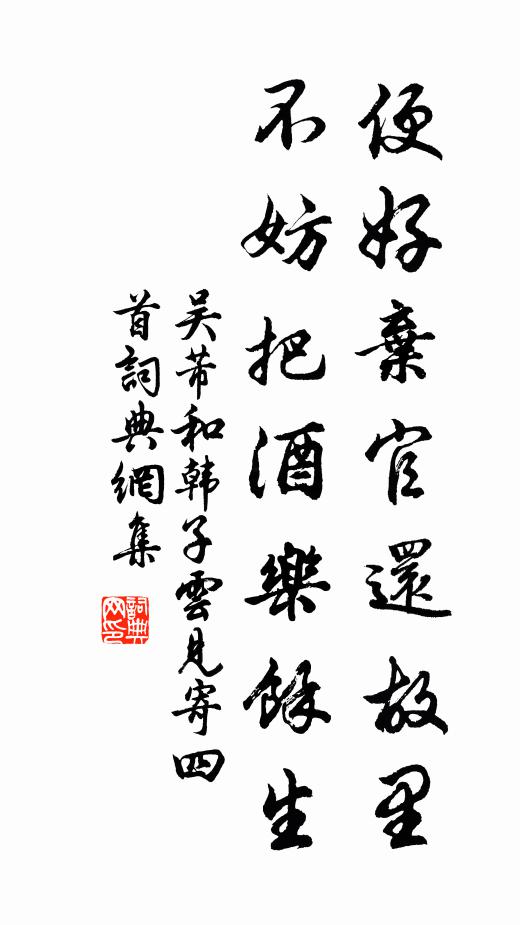 便好棄官還故里
不妨把酒樂餘生
吴芾和韩子雲見寄四
首詞典網集
詞典
网印